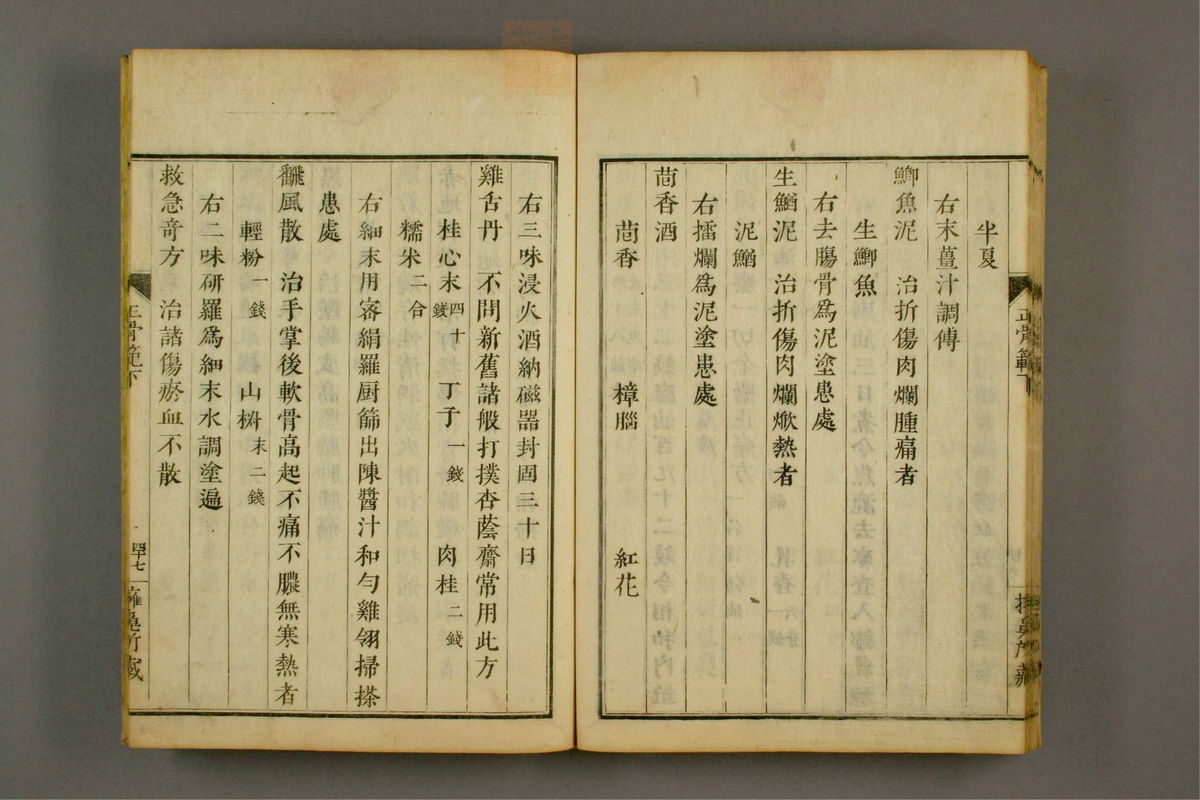 半夏
右末薑汁調傅
鯽魚泥　治折傷肉爛腫痛者
生鯽魚
右去腸骨爲泥塗患處
生鰌泥　治折傷肉爛焮熱者
泥鰌
右擂爛爲泥塗患處
茴香酒
茴香　樟腦　紅花
右三味浸火酒納磁器封固三十日
雞舌丹　不問新舊諸般打撲杏蔭齋常用此方
桂心末四十錢　丁子一錢　肉桂二錢
糯米二合
右細末用密絹羅厨篩出陳醬汁和勻雞翎掃搽
患處
飜風散　治手掌後軟骨高起不痛不膿無寒熱者
輕粉一錢　山梔末二錢
右二味研羅爲細末水調塗遍
救急奇方　治諸傷瘀血不散
正骨範下
四十七